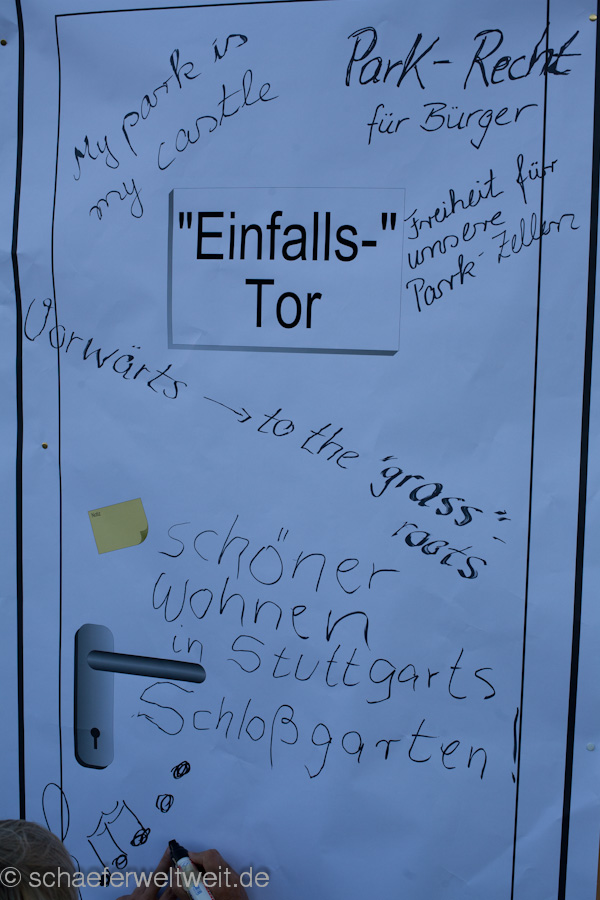 My park is
my castle
Park-Recht
für Bürger
"Einfalls-"
Tor
Freiheit für
unsere
Park-Zellen
Vorwärts → to the "grass"-
roots
schöner
wohnen
in Stuttgarts
Schloßgarten!
© schaeferweltweit.de